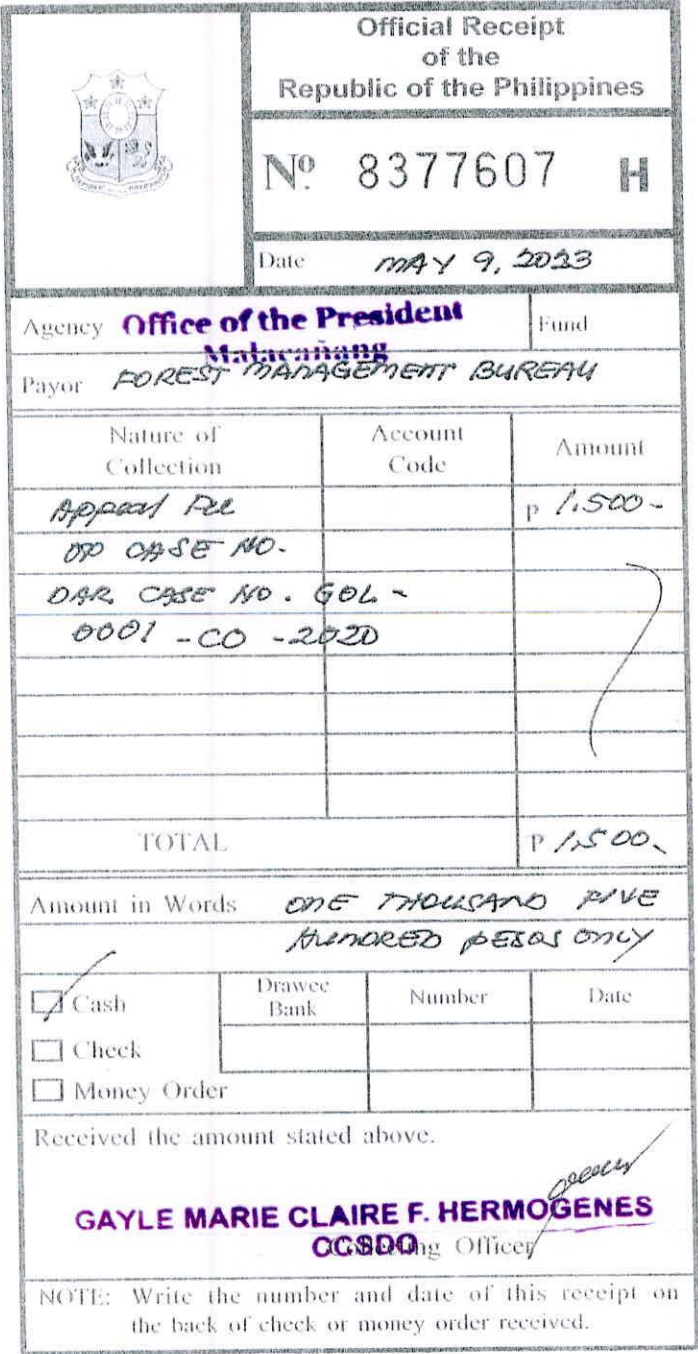 Official Receipt
of the
Republic of the Philippines
Nº 8377607 H
Date MAY 9, 2023
Agency Office of the President
Malacañang
Fund
Payor FOREST MANAGEMENT BUREAU
Nature of
Collection
Account
Code
Amount
Appeal Fee P 1,500-
OP CASE NO.
DAR CASE NO. GOL -
0001 - CO - 2020
TOTAL P 1,500-
Amount in Words ONE THOUSAND FIVE
HUNDRED PESOS ONLY
Cash
Drawee
Bank
Number
Date
Check
Money Order
Received the amount stated above.
GAYLE MARIE CLAIRE F. HERMOGENES
CCSDO
Collecting Officer
NOTE: Write the number and date of this receipt on
the back of check or money order received.